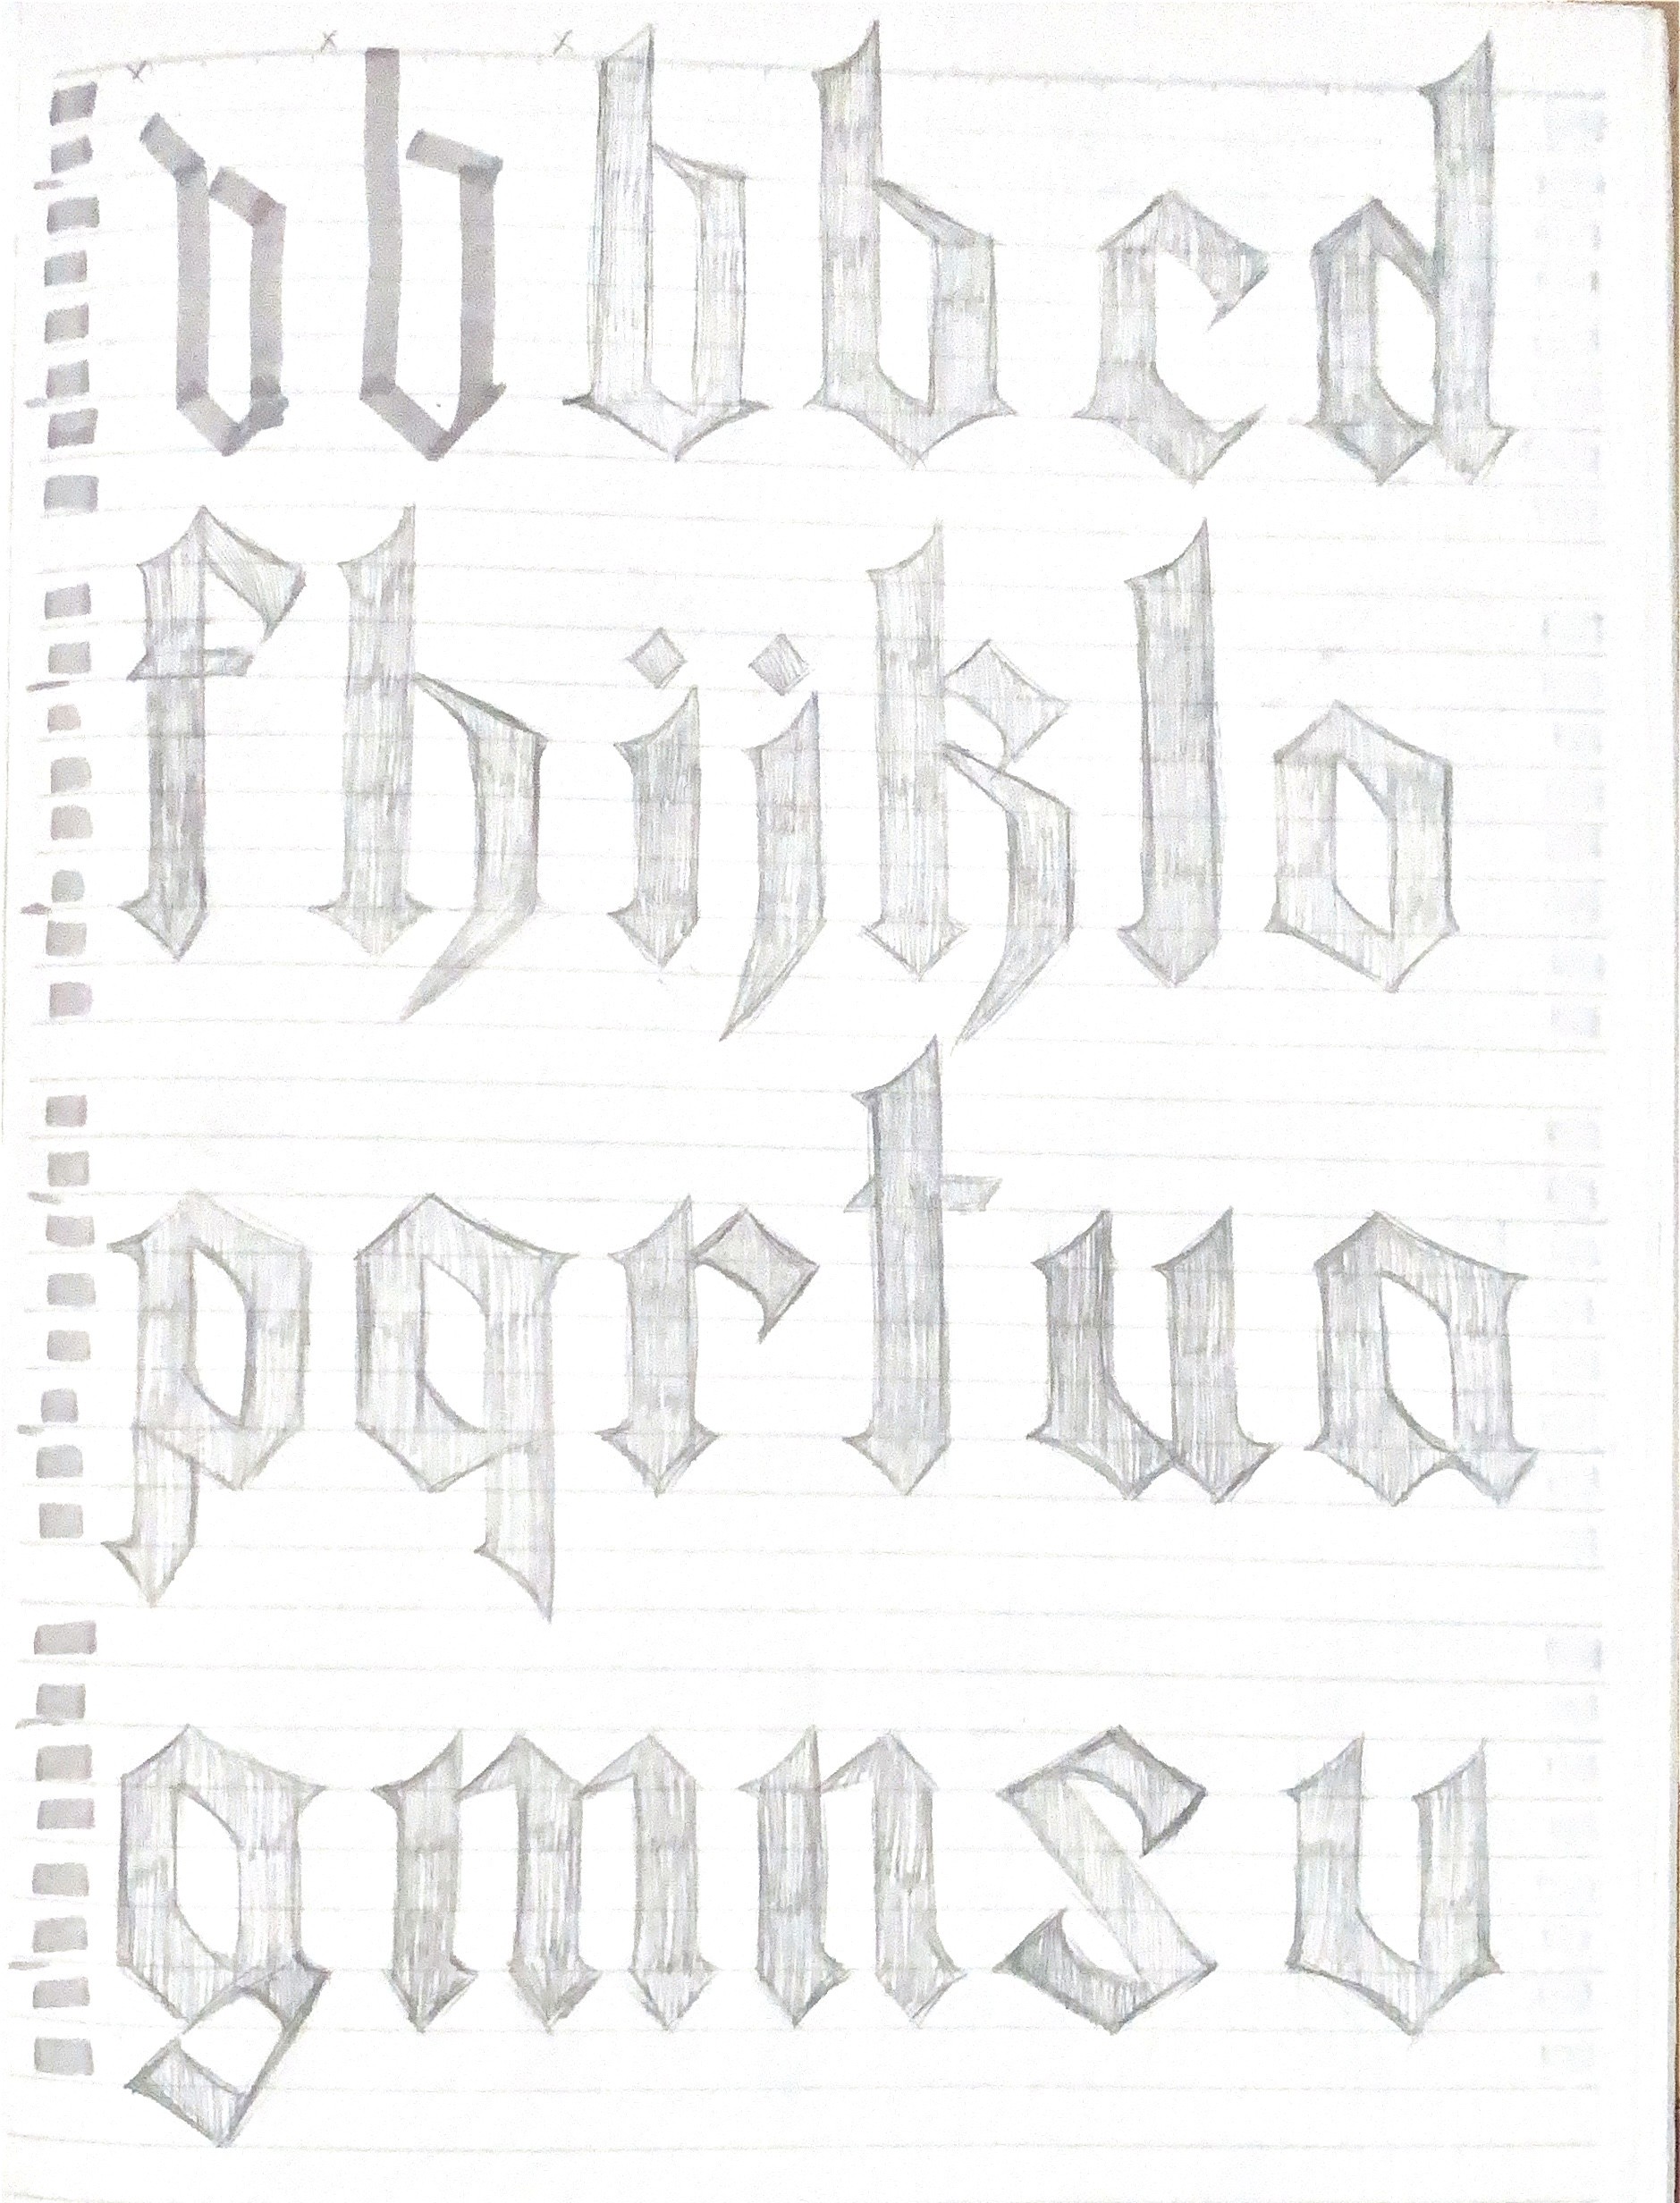 v b b b c d
f h i j k l o
p q r t u a
g m n s v